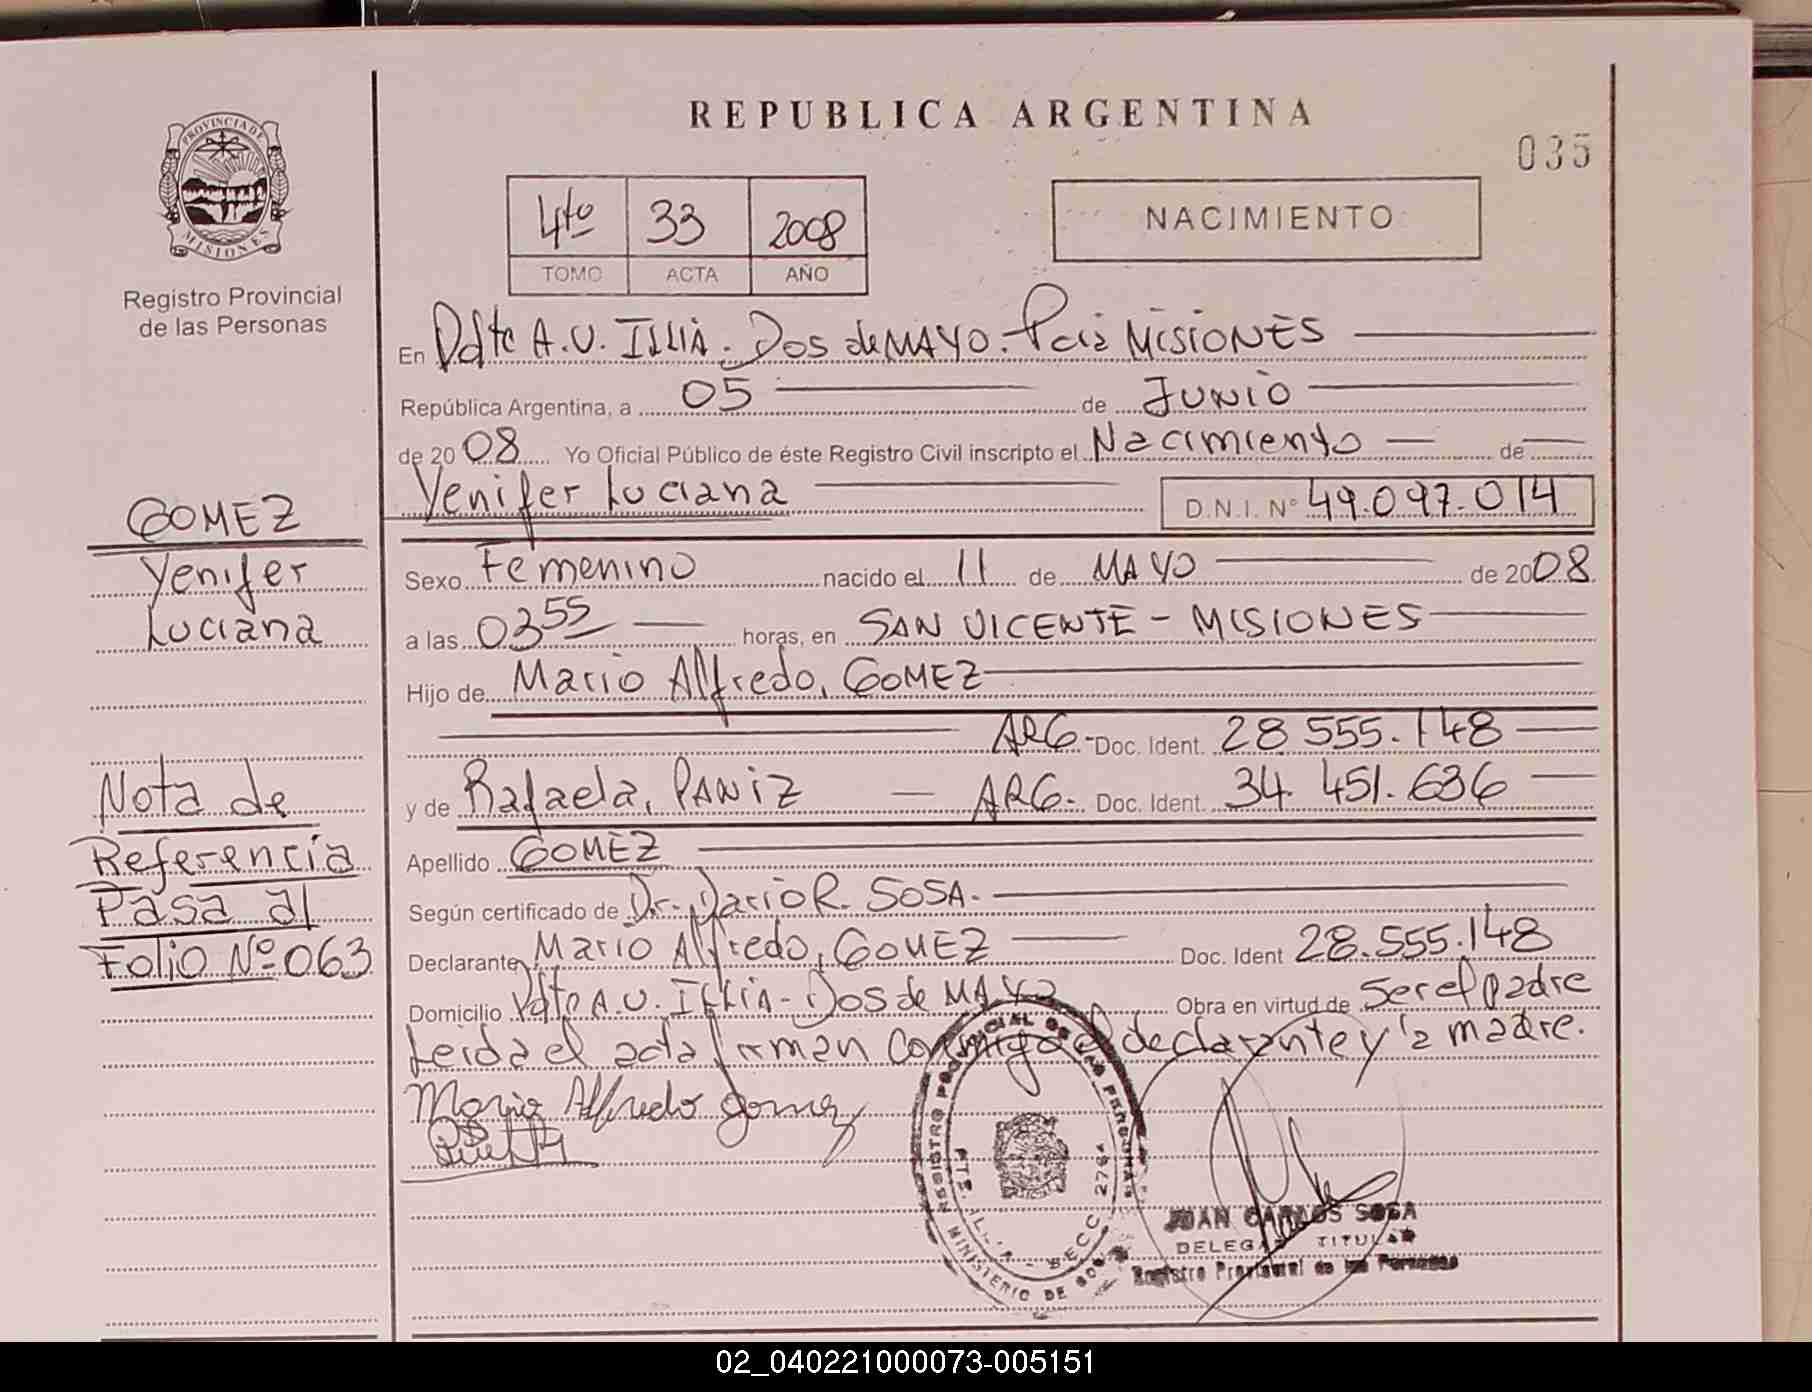 REPUBLICA ARGENTINA
035
PROVINCIA DE
MISIONES
Registro Provincial
de las Personas
4to 33 2008
TOMO ACTA AÑO
NACIMIENTO
En Pdte A.U. ILLIA. Dos de MAYO. Pcia MISIONES
República Argentina, a 05 de JUNIO
de 2008 Yo Oficial Público de éste Registro Civil inscripto el Nacimiento de
Yenifer Luciana D.N.I. Nº 49.097.014
GOMEZ
Yenifer
Luciana
Sexo Femenino nacido el 11 de MAYO de 2008
a las 03 55 horas, en SAN VICENTE - MISIONES
Hijo de Mario Alfredo, GOMEZ
ARG - Doc. Ident. 28 555.148
y de Rafaela, PANIZ — ARG. Doc. Ident. 34. 451.636
Apellido GOMEZ
Según certificado de Dr. Dario R. SOSA.
Declarante Mario Alfredo, GOMEZ Doc. Ident 28.555.148
Domicilio Pdte A.U. ILLIA - Dos de MAYO Obra en virtud de Ser el padre
Leida el acta firman conmigo el declarante y la madre.
Nota de
Referencia
Pasa al
Folio Nº 063
Mario Alfredo gomez
REGISTRO PROVINCIAL DE LAS PERSONAS
MINISTERIO DE
SECC 2764
JUAN CARLOS SOSA
DELEGADO TITULAR
Registro Provincial de las Personas
02_040221000073-005151